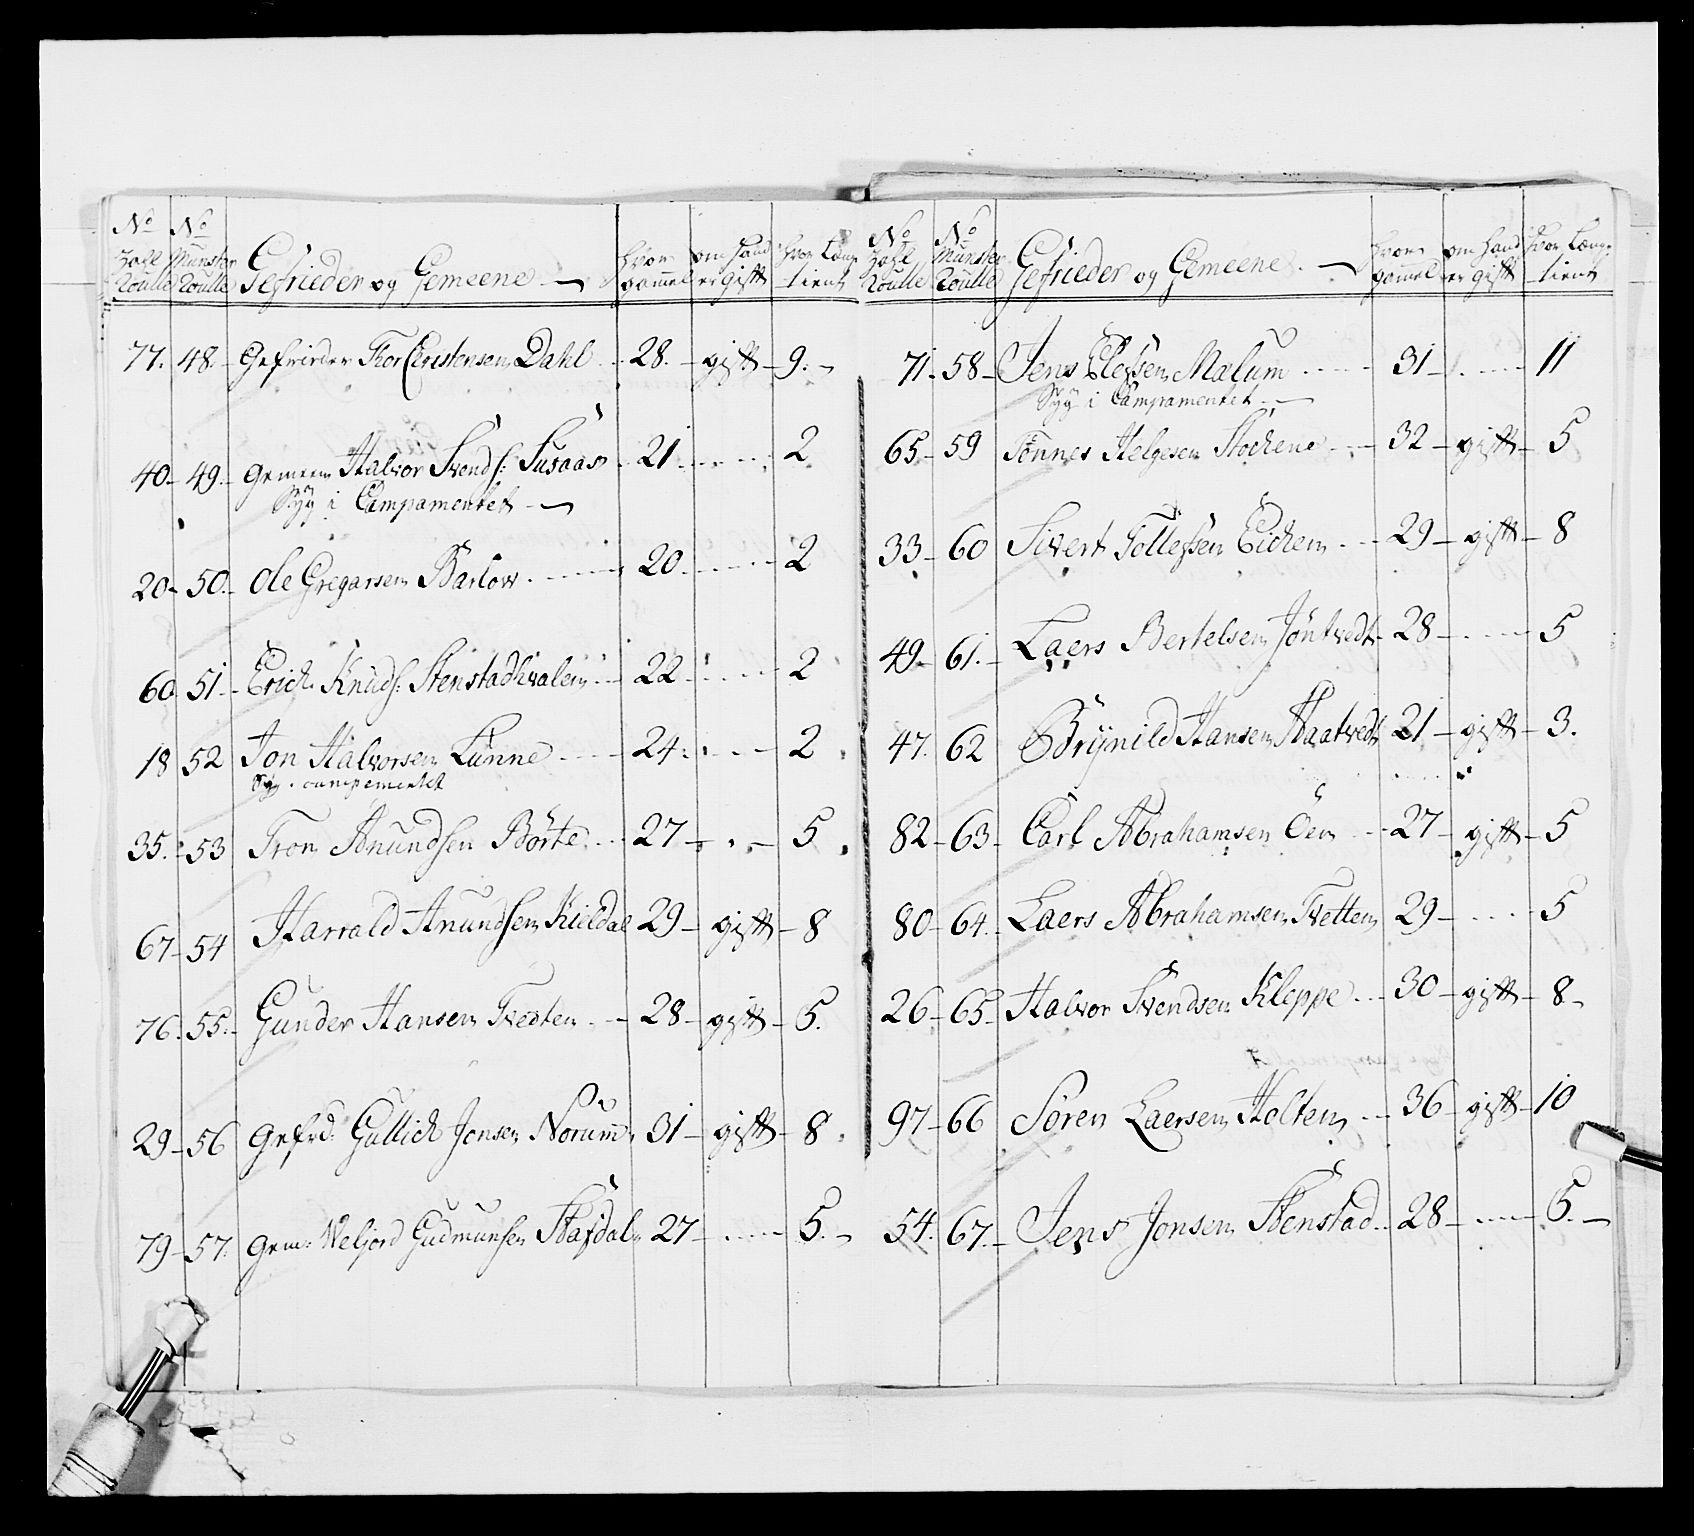 No Zahl Roulle | No Munster Roulle | Gefrieder og Gemeene | hvor gammel | om hand er gift | hvor Længe tient
77. 48. Gefrieder Thor Christensen Dahl 28. gift 9.
40 49. Gemeen Halvor Svends: Susaas 21 2
Syg i Campamentet
20 50. Ole Gregarsen Barlow 20 2
60 51 Erich Knuds: Stenstadhvalen 22 2
18 52 Jon Halvorsen Lunne 24 2
Syg i campementet
35. 53 Tron Anundsen Børte 27 5
67 54 Harrald Anundsen Kiildal 29 gift 8
76. 55. Gunder Hansen Tvedten 28 gift 5.
29 56 Gefrd: Gullich Jonsen Norum 31 gift 8
79 57. Gem: Veljord Gudmunsen Stafdal 27 5.
No Zahl Roulle | No Munster Roulle | Gefrieder og Gemeene | hvor gammel | om hand er gift | hvor Længe tient
71. 58 Jens Elefsen Mælum 31 11
Syg i Campamentet
65 59 Tønnes Helgesen Stochene 32 gift 5
33 60 Sivert Tollefsen Eichen 29 gift 8
49 61. Laers Bertelsen Jøntvedt 28 5
47. 62 Brynild Hansen Haatvedt 21 gift 3.
82 63 Carl Abrahamsen Øen 27 gift 5
80 64. Laers Abrahamsen Tvetten 29 5
26 65 Halvor Svendsen Kleppe 30 gift 8
97 66 Søren Laersen Holten 36 gift 10
54. 67. Jens Jonsen Stenstad 28 5.